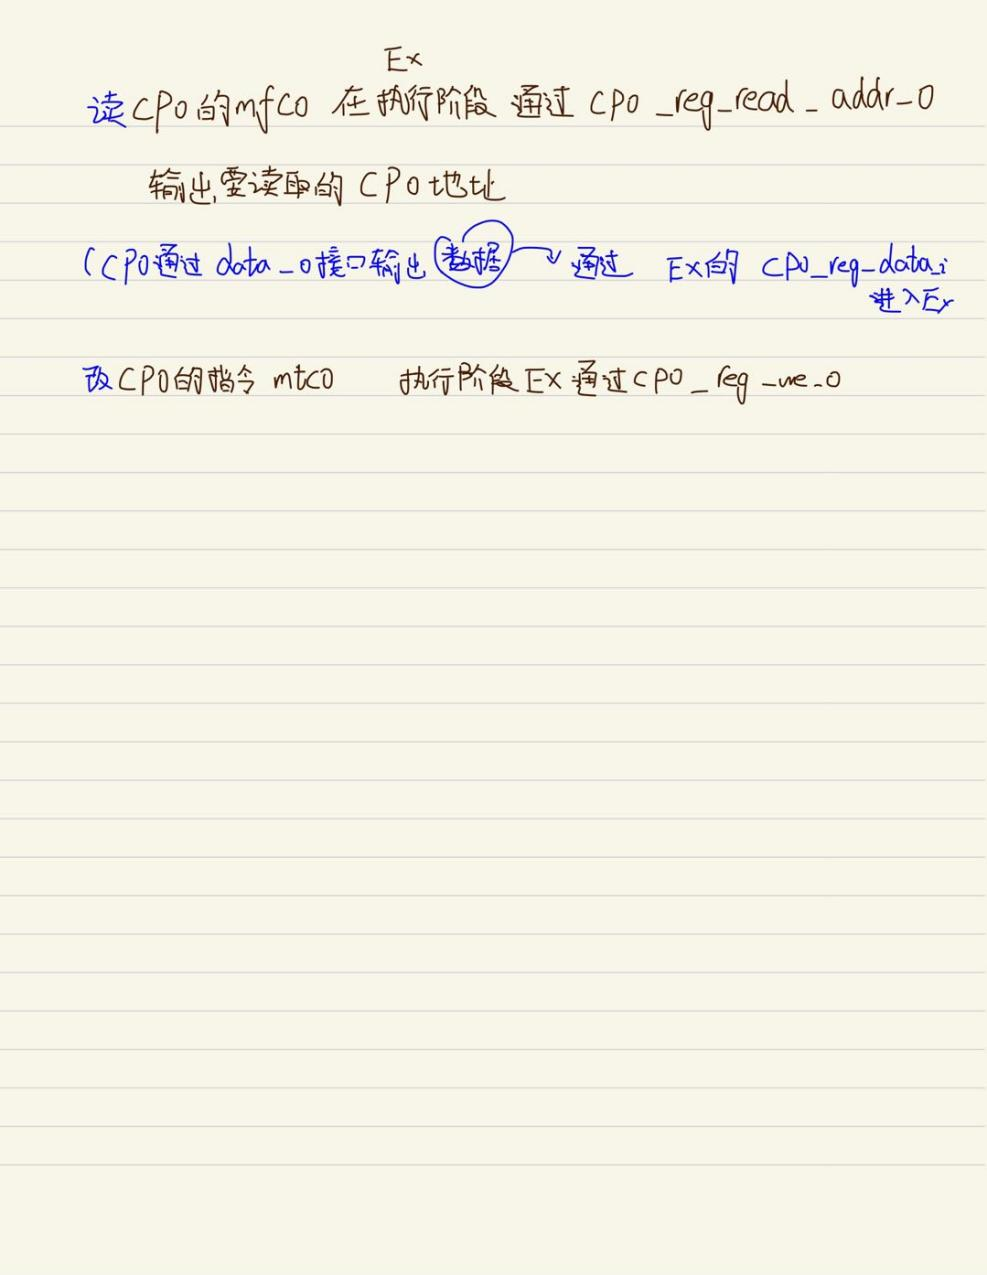 Ex
读CP0的mfc0 在执行阶段 通过 CP0_reg_read_addr_o
输出要读取的CP0地址
(CP0通过 data_o接口输出 数据 通过 Ex的 CP0_reg_data_i
进入Ex
改CP0的指令 mtc0 执行阶段EX通过CP0_reg_we_o